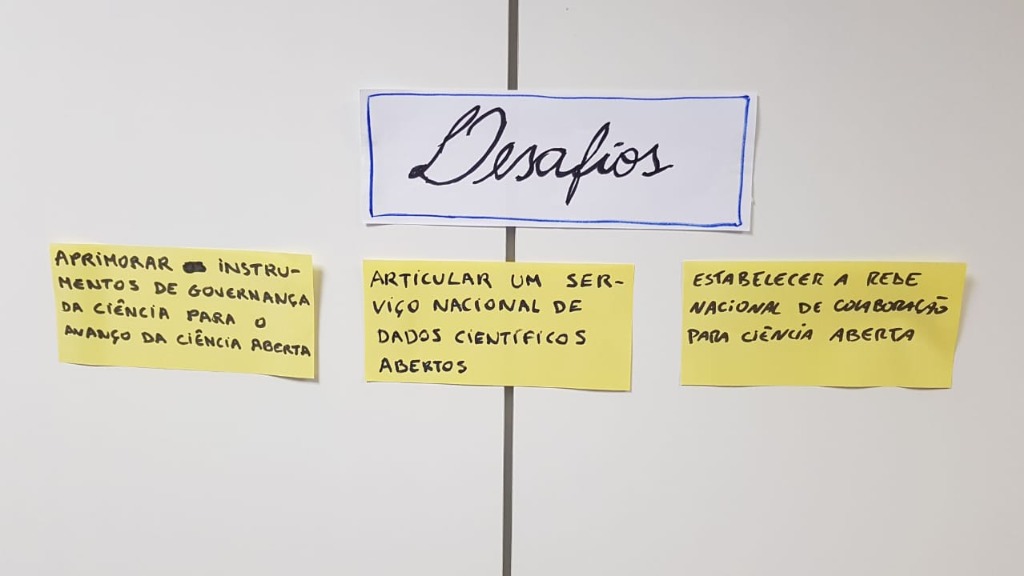 Desafios
APRIMORAR INSTRU-
MENTOS DE GOVERNANÇA
DA CIÊNCIA PARA O
AVANÇO DA CIÊNCIA ABERTA
ARTICULAR UM SER-
VIÇO NACIONAL DE
DADOS CIENTÍFICOS
ABERTOS
ESTABELECER A REDE
NACIONAL DE COLABORAÇÃO
PARA CIÊNCIA ABERTA